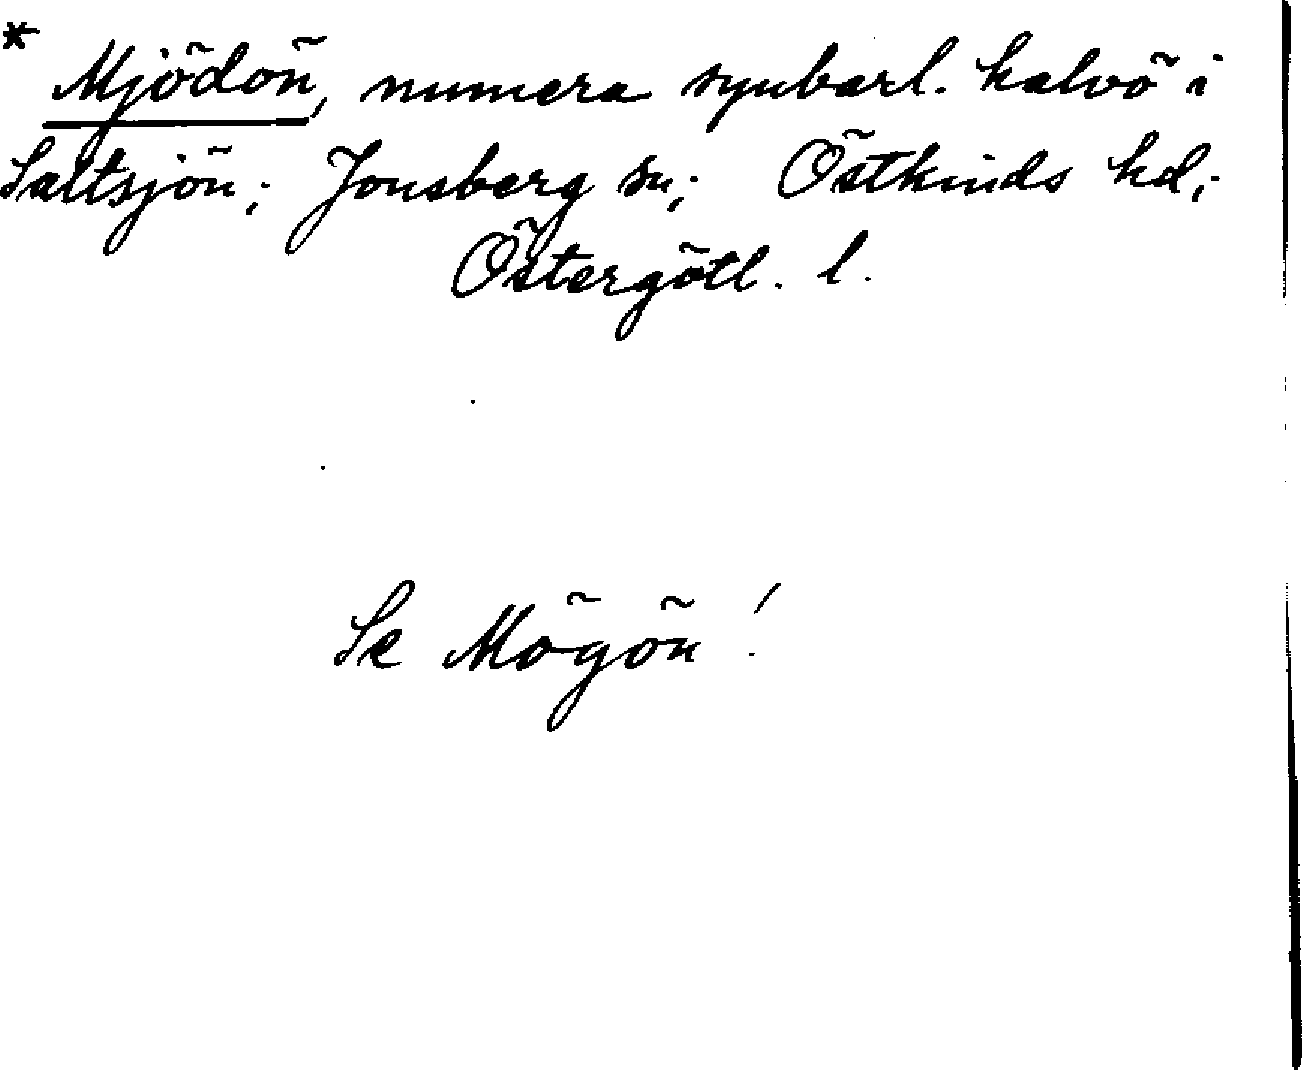 * Mjödön, numera synbarl. halvö i
Saltsjön; Jonsberg sn; Östkinds hd;
Östergötl. l.
Se Mögön!